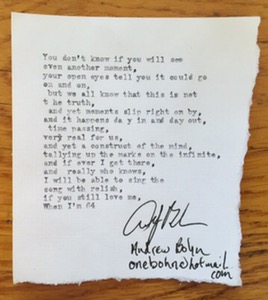 You don't know if you will see
even another moment,
your open eyes tell you it could go
on and on,
but we all know that this is not
t he truth,
and yet moments slip right on by,
and it happens da y in and day out,
time passing,
very real for us,
and yet a construct of the mind,
tallying up the marks on the infinite,
and if ever I get there,
and really who knows,
I will be able to sing the
song with relish,
if you still love me,
When I'm 64
Andrew Bohn
onebohn@hotmail.
com